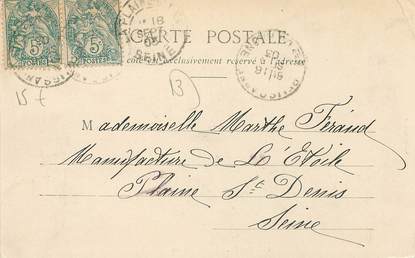 CARTE POSTALE
côté exclusivement réservé à l'adresse
5c 5c
POSTES POSTES
SEINE
15 €
13
Mademoiselle Marthe Féraud
Manufacture de L'Etoile
Plaine St Denis
Seine